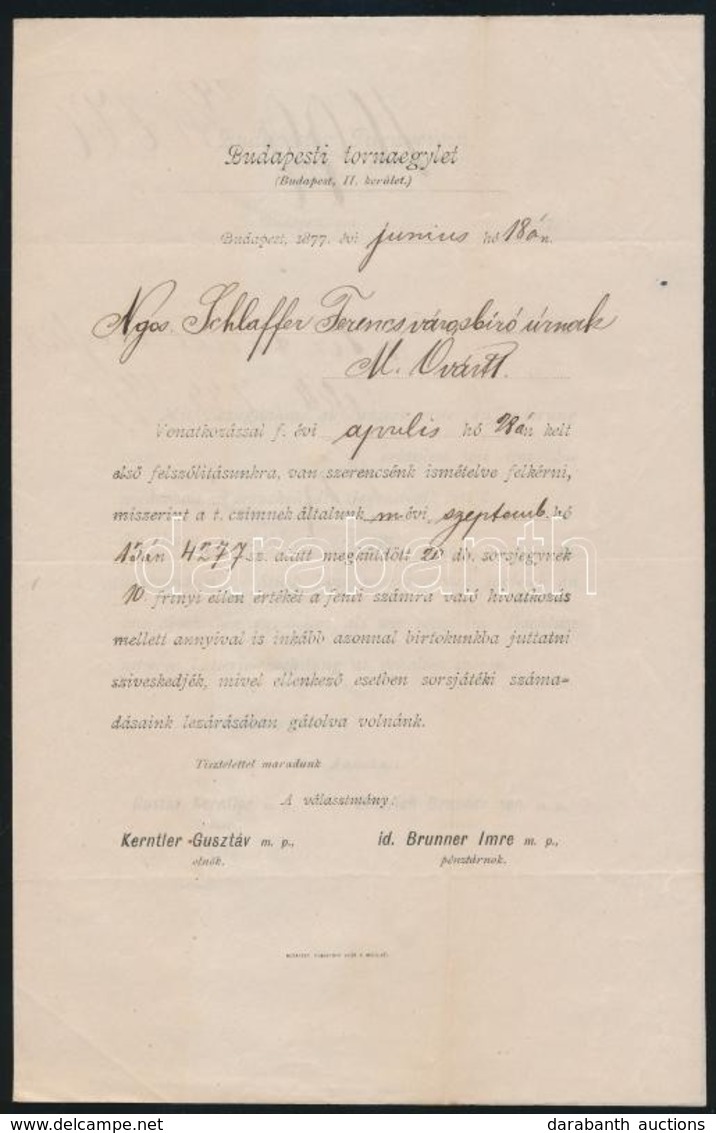 Budapesti tornaegylet
(Budapest, II. kerület.)
Budapest, 1877. évi junius hó 18án.
Ngos. Schlaffer Ferencs városbíró úrnak
M. Óvártt.
Vonatkozással f. évi aprilis hó 28án kelt
első felszólitásunkra, van szerencsénk ismételve felkérni,
miszerint a t. czimnek általunk m. évi, szeptemb. hó
15án 4277 sz. alatt megküldött 20 db. sorsjegynek
10 frtnyi ellen értékét a fenti számra való hivatkozás
mellett annyival is inkább azonnal birtokunkba juttatni
sziveskedjék, mivel ellenkező esetben sorsjátéki száma-
dásaink lezárásában gátolva volnánk.
Tisztelettel maradunk
A választmány:
Kerntler Gusztáv m. p., id. Brunner Imre m. p.,
elnök. pénztárnok.
darabanth
darabanth auctions